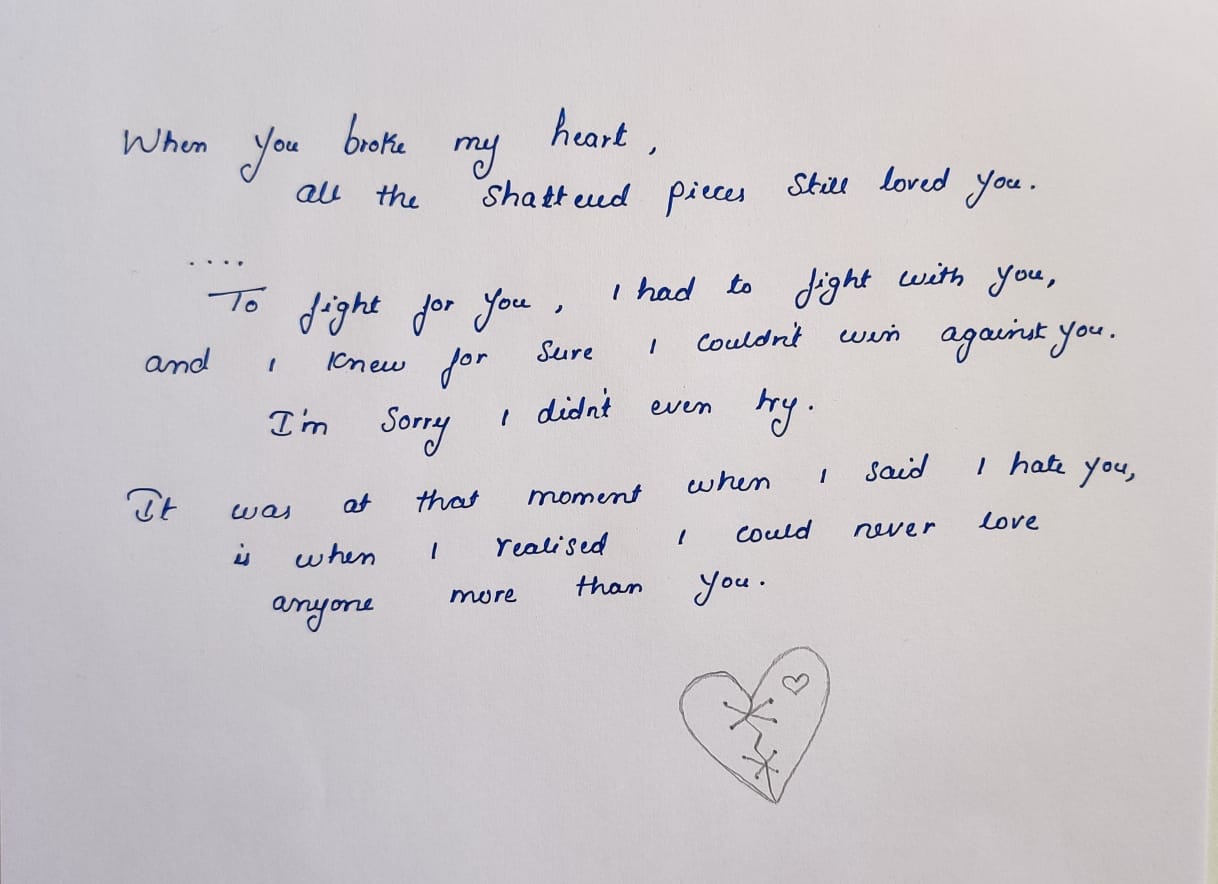 When you broke my heart,
all the shattered pieces still loved you.
....
To fight for you, I had to fight with you,
and I knew for sure I couldn't win against you.
I'm sorry I didn't even try.
It was at that moment when I said I hate you,
is when I realised I could never love
anyone more than you.